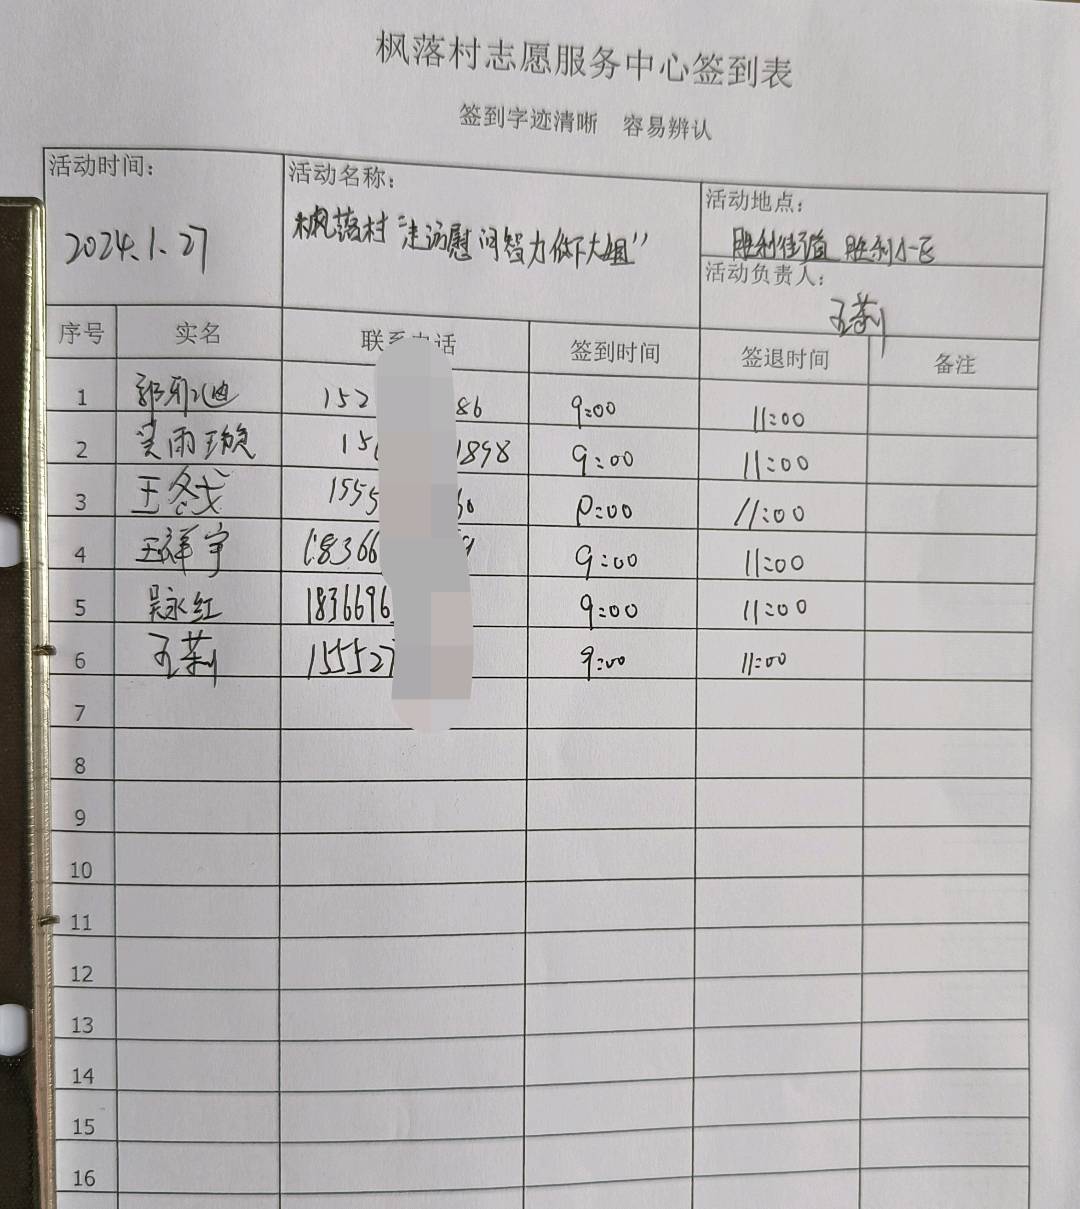 枫落村志愿服务中心签到表
签到字迹清晰 容易辨认
活动时间：
2024.1.27
活动名称：
枫落村“走访慰问智力低下大姐”
活动地点：
胜利街道 胜利小区
活动负责人：
王莉
序号 实名 联系 话 签到时间 签退时间 备注
1 152 86 9:00 11:00
2 15 1898 9:00 11:00
3 王冬 1555 9:00 11:00
4 王祥宇 18366 9:00 11:00
5 吴永红 1836696 9:00 11:00
6 王莉 155527 9:00 11:00
7
8
9
10
11
12
13
14
15
16